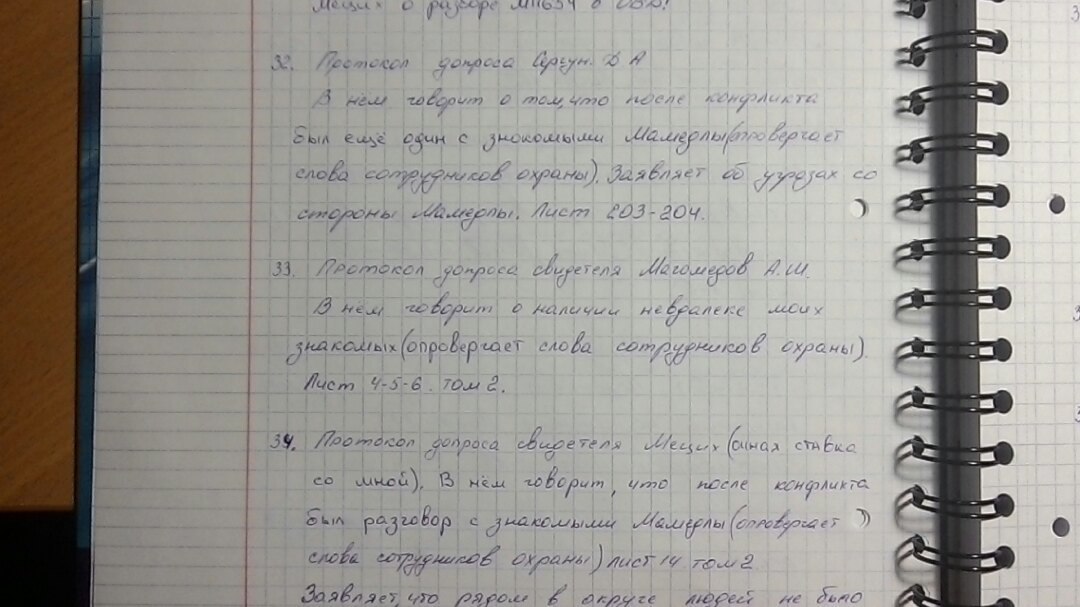 Мещих о разборе
32. Протокол допроса Сергун. Д А
В нём говорит о том, что после конфликта
был ещё один с знокомыми Мамедлы(опровергает
слова сотрудников охраны). Заявляет об угрозах со
стороны Мамедлы. Лист 203-204.
33. Протокол допроса свидетеля Магомедов А.Ш.
В нём говорит о наличии невдалеке моих
знакомых(опровергает слова сотрудников охраны).
Лист 4-5-6. том 2.
34. Протокол допроса свидетеля Мещих (очная ставка
со мной). В нём говорит, что после конфликта
был разговор с знакомыми Мамедлы(опровергает
слова сотрудников охраны) лист 14 том 2
Заявляет, что рядом в округе людей не было